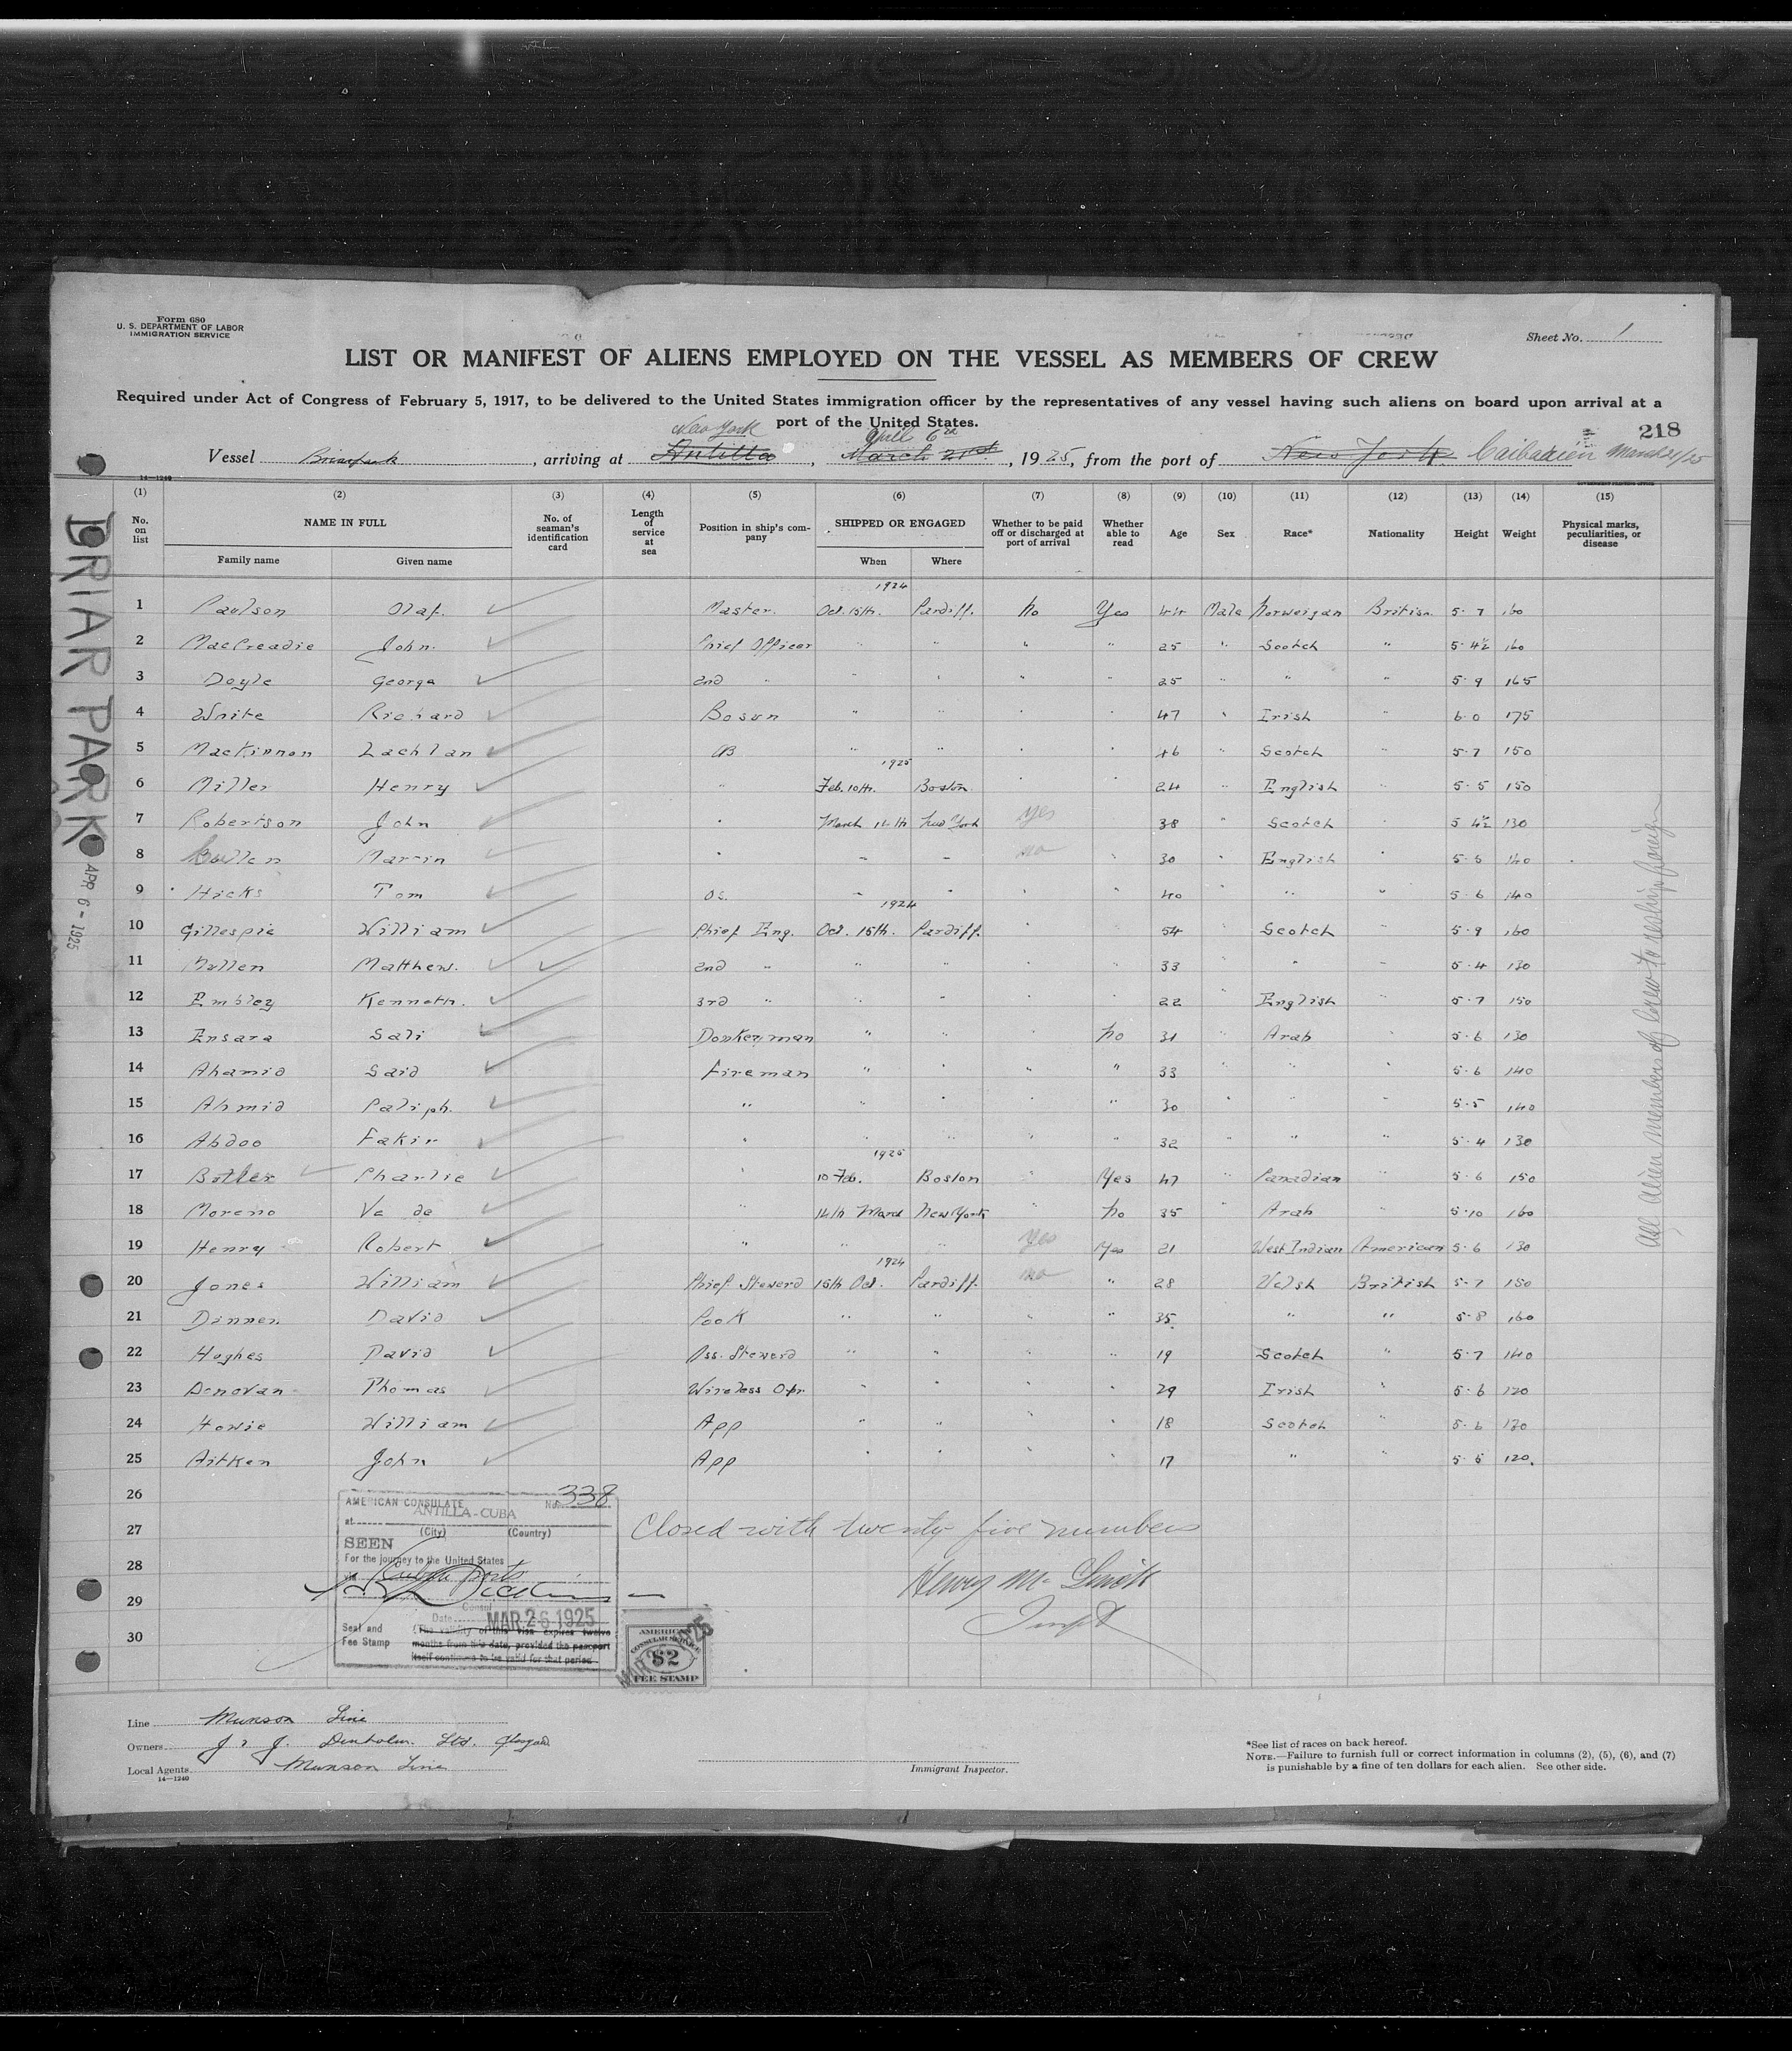 Form 680
U. S. DEPARTMENT OF LABOR
IMMIGRATION SERVICE
Sheet No. 1
LIST OR MANIFEST OF ALIENS EMPLOYED ON THE VESSEL AS MEMBERS OF CREW
Required under Act of Congress of February 5, 1917, to be delivered to the United States immigration officer by the representatives of any vessel having such aliens on board upon arrival at a
port of the United States.
218
New York April 6
Vessel Briarpark, arriving at Antilla, March 21st, 1925, from the port of New York Caibarien March 31/25
14—1240
(1) (2) (3) (4) (5) (6) (7) (8) (9) (10) (11) (12) (13) (14) (15)
No. on list NAME IN FULL No. of seaman's identification card Length of service at sea Position in ship's company SHIPPED OR ENGAGED Whether to be paid off or discharged at port of arrival Whether able to read Age Sex Race* Nationality Height Weight Physical marks, peculiarities, or disease
Family name Given name When Where
1924
1 Paulson Olaf. Master. Oct. 15th. Cardiff. No Yes 44 Male Norweigan British 5-7 160
2 MacCreadie John. Chief Officer " " " " 25 " Scotch " 5-4½ 160
3 Doyle George 2nd " " " " " 25 " " " 5-9 165
4 White Richard Bosun " " " " 47 " Irish " 6-0 175
5 MacKinnon Lachlan AB " " " " 46 " Scotch " 5-7 150
1925
6 Miller Henry " Feb. 10th. Boston. " " 24 " English " 5-5 150
7 Robertson John " March 14th New York yes 38 " Scotch " 5 4½ 130
8 Bullen Martin " " " no " 30 " English " 5-5 140
9 Hicks Tom OS. " " " " 40 " " " 5-6 140
1924
10 Gillespie William Chief Eng. Oct. 15th. Cardiff. " " 54 " Scotch " 5-9 160
11 Matthew. 2nd " " " " " 33 " " " 5-4 130
12 Embley Kenneth. 3rd " " " " " 22 " English " 5-7 150
13 Ensara Sali Donkeyman " " " No 31 " Arab " 5-6 130
14 Ahamid Said Fireman " " " " 33 " " " 5-6 140
15 Ahmid Caliph. " " " " " 30 " " " 5-5 140
16 Abdoo Fakir " " " " " 32 " " " 5-4 130
1925
17 Butler Charlie " 10 Feb. Boston " Yes 47 " Canadian " 5-6 150
18 Moreno " 14th March New York " No 35 " Arab " 5-10 160
19 Henry Robert " " " yes Yes 21 West Indian American 5-6 130
1924
20 Jones William Chief Steward 15th Oct. Cardiff. no " 28 Welsh British 5-7 150
21 Dinnen David Cook " " " " 35. " " 5-8 160
22 Hughes David Ass. Steward " " " " 19 Scotch " 5-7 140
23 Donovan Thomas Wireless Opr. " " " " 29 Irish " 5-6 120
24 Howie William App " " " " 18 Scotch " 5-6 130
25 Aitken John App " " " " 17 " " 5-5 120.
26
27
28
29
30
BRIAR PARK
APR 6 - 1925
All alien members of crew to reship foreign
AMERICAN CONSULATE No. 338
at ANTILLA-CUBA
(City) (Country)
SEEN
For the journey to the United States
via
Consul
Date MAR 26 1925
Seal and Fee Stamp
(The validity of this visa expires twelve months from this date, provided the passport itself continues to be valid for that period
AMERICAN CONSULAR SERVICE
$2
FEE STAMP
Closed with twenty five members
Line Munson Line
Owners J & J. Denholm. Ltd. Glasgow
Local Agents Munson Line
14—1240
Immigrant Inspector.
*See list of races on back hereof.
NOTE.—Failure to furnish full or correct information in columns (2), (5), (6), and (7)
is punishable by a fine of ten dollars for each alien. See other side.